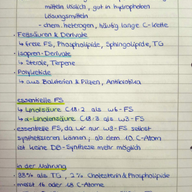 mitteln löslich, gut in hydrophoben
Lösungsmitteln
- chem. heterogen, häufig lange C-Kette
- Fettsäuren & Derivate
↳ freie FS, Phospholipide, Sphingolipide, TG
- Isopren-Derivate
↳ Steroide, Terpene
- Polyketide
↳ aus Bakterien & Pilzen, Antibiotika
essentielle FS
- Linolsäure C18:2 als ω6-FS
- α-Linolensäure C18:3 als ω3-FS
- essentielle FS, da wir nur ω9-FS selbst
synthetisieren können, ab dem 10. C-Atom
ist keine DB-Synthese mehr möglich
in der Nahrung
- 88% als TG, 2% Cholesterin & Phospholipide
- meist 16 oder 18 C-Atome